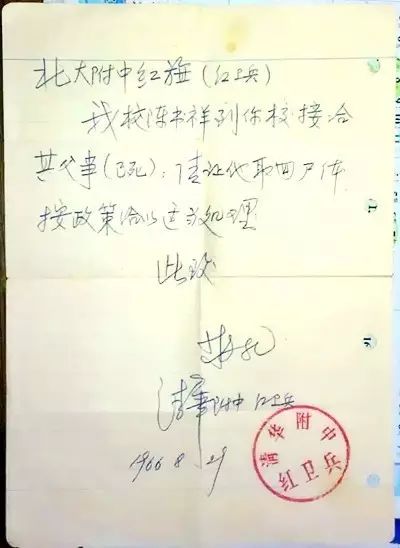 北大附中红旗(红卫兵)
我校陈书祥到你校接合
其父事(已死),请让代取回尸体
按政策给以适当处理
此致
敬礼
清华附中 红卫兵
1966 8 29
清华附中
红卫兵